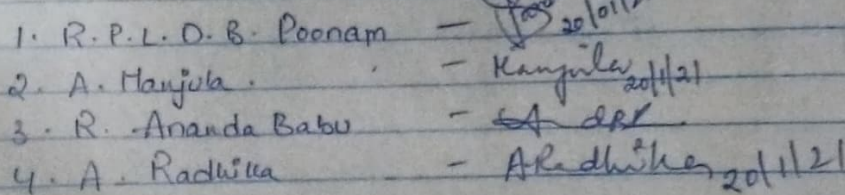 1. R.P.L.D.B. Poonam - 20/01/
2. A. Manjula. - Manjula 20/1/21
3. R. Ananda Babu -
4. A. Radhika - A Radhika 20/1/21